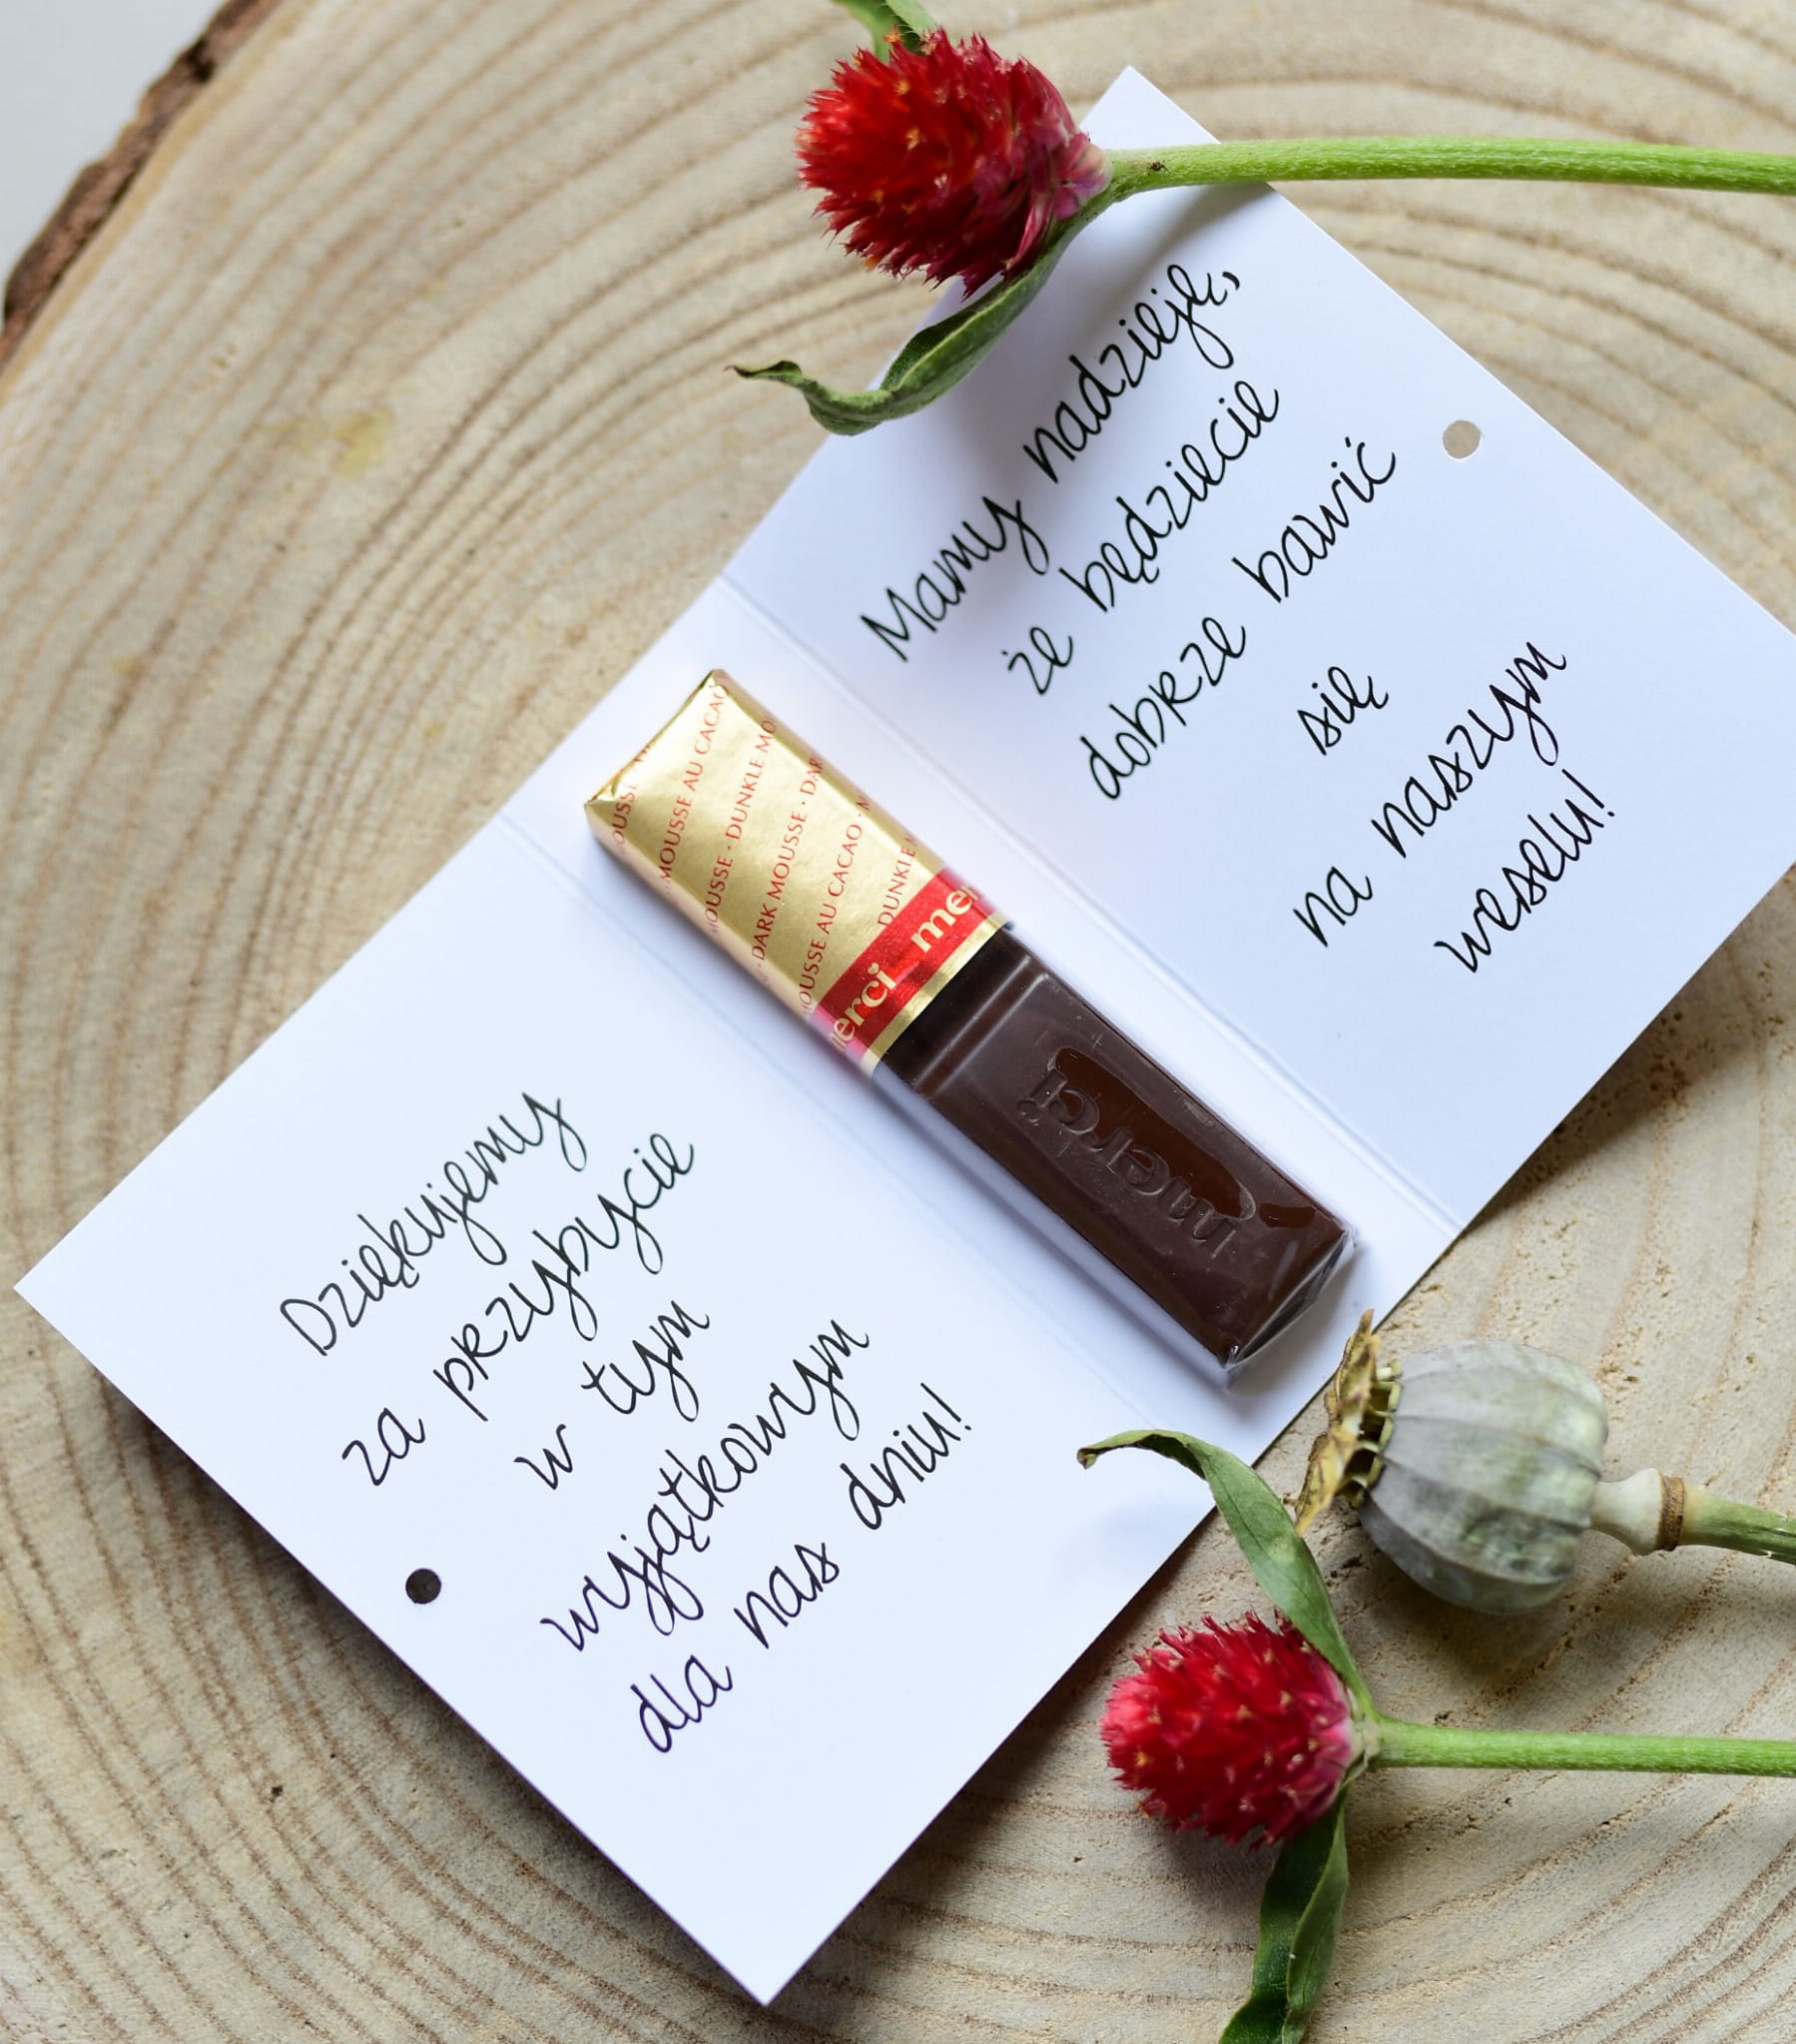 Dziękujemy
za przybycie
w tym
wyjątkowym
dla nas dniu!
MOUSSE AU CACAO
MOUSSE · DUNKLE MO
· DARK MOUSSE · DAR
MOUSSE AU CACAO · M
DUNKLE
merci mer
merci
Mamy nadzieję,
że będziecie
dobrze bawić
się
na naszym
weselu!